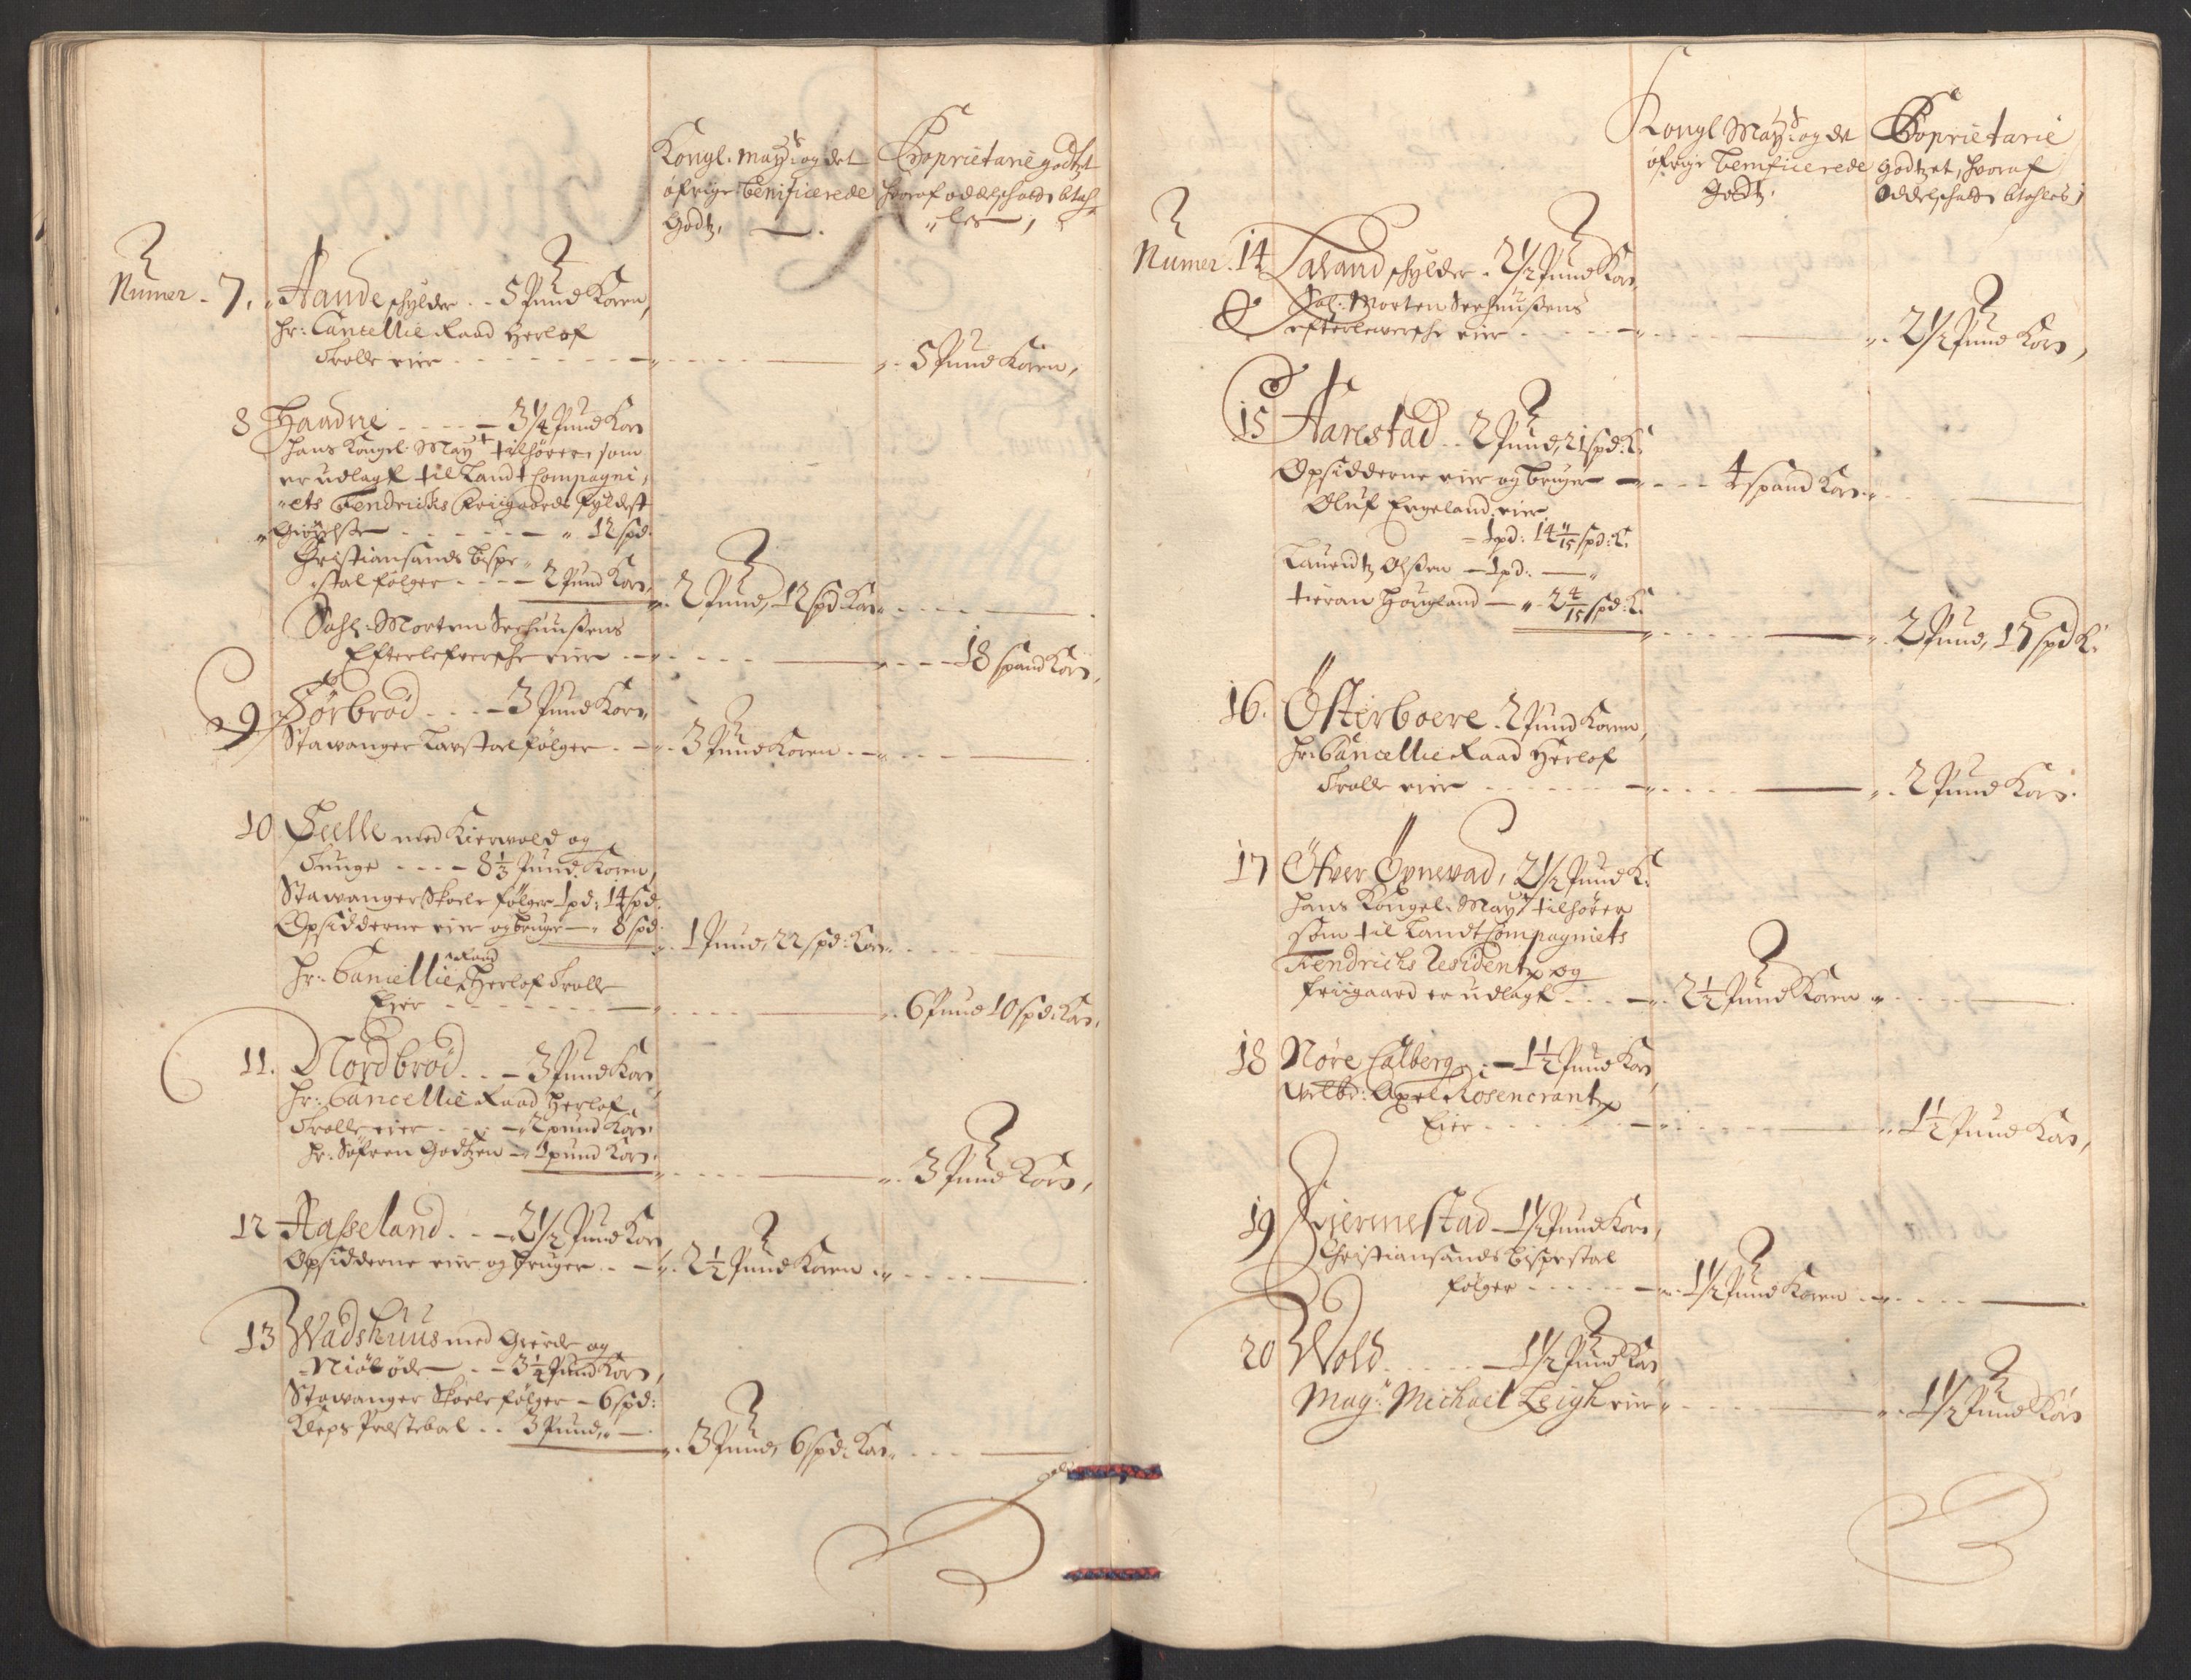 Kongl. Mayts og det
øfrige Benificerede
Godtz,
Proprietarie godtzet
hvoraf oddelschatt betah-
"les,
Numer. 7. Hande schylder .. 5 Pund Koren,
Hr: Cancellie Raad Herlof
Trolle eier
5 Pund Koren,
8 Haadne - 3¼ Pund Korn
Hans Kongel. Mayt tilhører som
er udlagt til Land Compagni,
"ets Fendrichs Friigaards fyldest
12 spd.
Christiansands Bispe-
stal følger - 2 Pund Korn,
2 Pund, 12 spd Korn
Sahl. Morten Seehuusens
Efterlefversche eier
18 spand Korn,
9 Sørbrød - 3 Pund Korn
Stawanger Lavstoel følger
3 Pund Koren
10 Sælle med Kierwold og
Tunge - 8⅓ Pund Koren,
Stawanger Skoele følger 1 pd: 14 spd.
Opsidderne eier og bruger - 8 spd.
1 Pund, 22 spd: Korn
Hr. Cancellie Raad Herlof Trolle
Eier
6 Pund 10 spd. Korn,
11. Nordbrød - 3 Pund Korn
Hr: Cancellie Raad Herlof
Trolle eier - 2 pund Korn.
Hr. Søfren Godtzen - 1 pund Korn.
3 Pund Korn,
12 Hasseland - 2½ Pund Korn
Opsidderne eier og bruger
2½ Pund Koren
13 Wadshuus med Gierde og
Niøbøde - 3¼ Pund Korn,
Stawanger Skoele følger - 6 spd:
Kleps Præstebol .. 3 Pund,
3 Pund, 6 spd: Korn
Kongl Mayts og de
øfrige Benificerede
Godtz.
Proprietarie
Godtzet, hvoraf
Oddelschatt betahles,
Numer. 14 Laland schylder - 2½ Pund Korn
Sal: Morten Seehuusens
efterlewersche eier
2½ Pund Korn,
15 Harestad .. 2 Pund, 21 spd: K:
Opsidderne eier og bruger
4 spand Korn
Oluf Ergeland eier
1 pd: 14 11/15 spd: K.
Lauridtz Olssen - 1 pd:
Hougland - 2 4/15 spd: K.
2 Pund, 17 spd K:
16. Østerboere . 2 Pund Koren,
Hr. Cancellie Raad Herlof
Trolle eier
2 Pund Korn.
17 Øfver Øxnevad, 2½ Pund K:
Hans Kongel. Mayt tilhører
som til Land Compagniets
Fendrichs Residentz og
friigaard er udlagt
2½ Pund Koren
18 Nøre Calberg - 1½ Pund Korn,
Velbr: Axel Rosencrantz
Eier
1½ Pund Korn,
19 Giermestad - 1½ Pund Korn,
Christiansands Bispestol
følger
1½ Pund Koren
20 Wold - 1½ Pund Korn
Magr: Michael Leigh eier
1½ Pund Korn